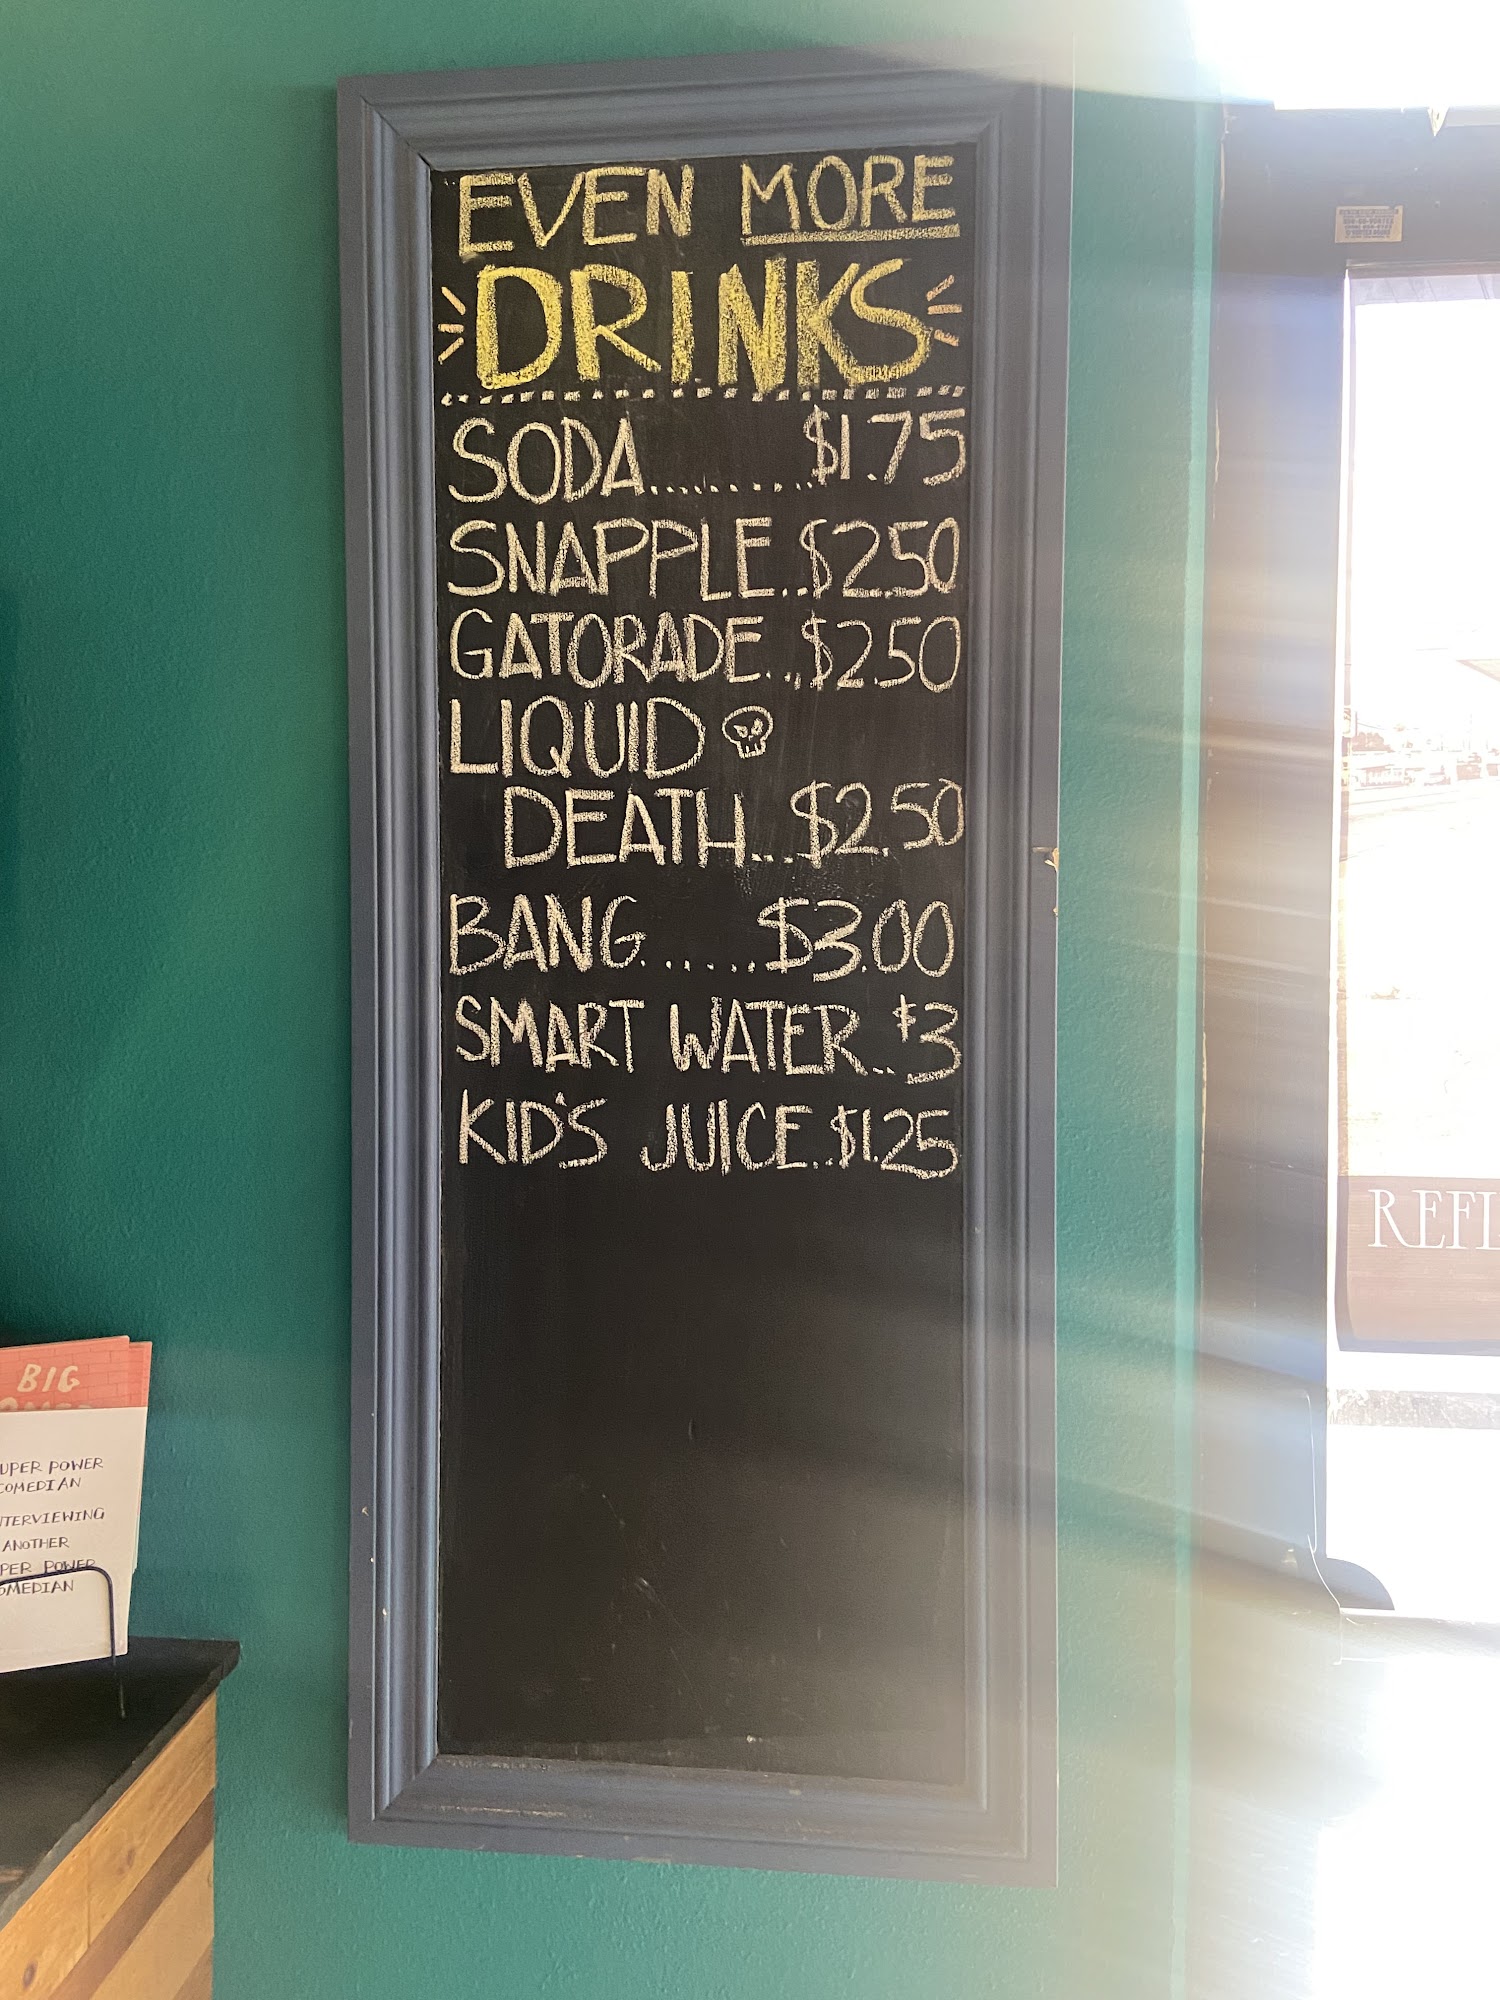 EVEN MORE
DRINKS
SODA.........$1.75
SNAPPLE..$2.50
GATORADE...$2.50
LIQUID
DEATH...$2.50
BANG......$3.00
SMART WATER..$3
KID'S JUICE..$1.25
BIG
UPER POWER
COMEDIAN
TERVIEWING
ANOTHER
PER POWER
OMEDIAN
REFL